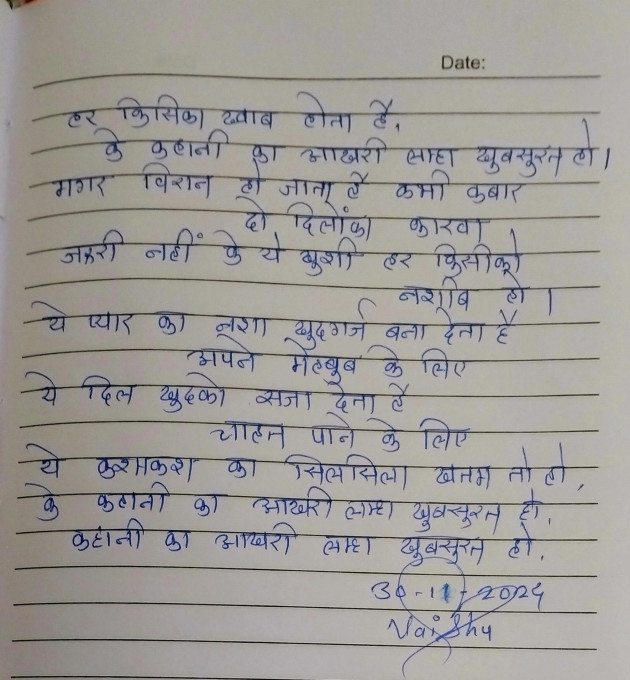 Date:
हर किसिका ख्वाब होता है,
के कहानी का आखरी लम्हा खुबसुरत हो।
मगर विरान हो जाता है कभी कबार
दो दिलोंका कारवा
जरुरी नहीं के ये खुशी हर किसीको
नशीब हो।
ये प्यार का नशा खुदगर्ज बना देता है
अपने मेहबुब के लिए
ये दिल खुदको सजा देता है
चाहत पाने के लिए
ये कशमकश का सिलसिला खतम तो हो,
के कहानी का आखरी लम्हा खुबसुरत हो,
कहानी का आखरी लम्हा खुबसुरत हो.
30-11-2024